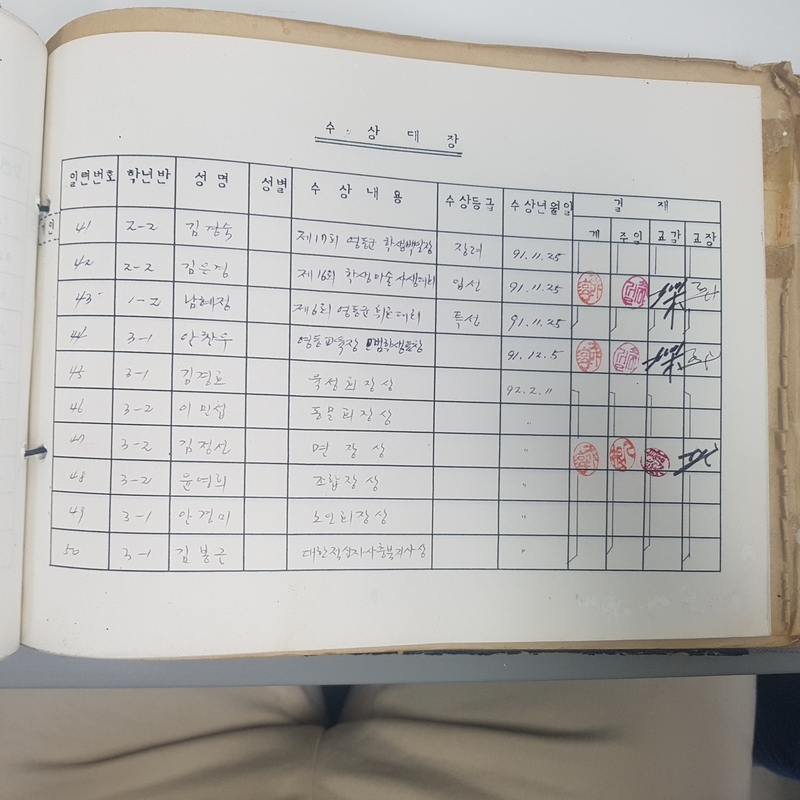 수 상 대 장
일련번호 학년반 성명 성별 수상내용 수상등급 수상년월일 결재
계 주임 교감 교장
41 2-2 김경숙 제17회 영동군 학생백일장 장려 91.11.25
42 2-2 김은경 제16회 학생미술사생대회 입선 91.11.25
43 1-2 남혜정 제6회 영동군 대회 특선 91.11.25
44 3-1 안찬우 영동교육장 모범학생표창 91.12.5
45 3-1 김경효 육성회장상 92.2.11
46 3-2 이민섭 동문회장상 〃
47 3-2 김정선 면장상 〃
48 3-2 윤영희 조합장상 〃
49 3-1 안경미 노인회장상 〃
50 3-1 김봉근 대한적십자사충북지사상 〃